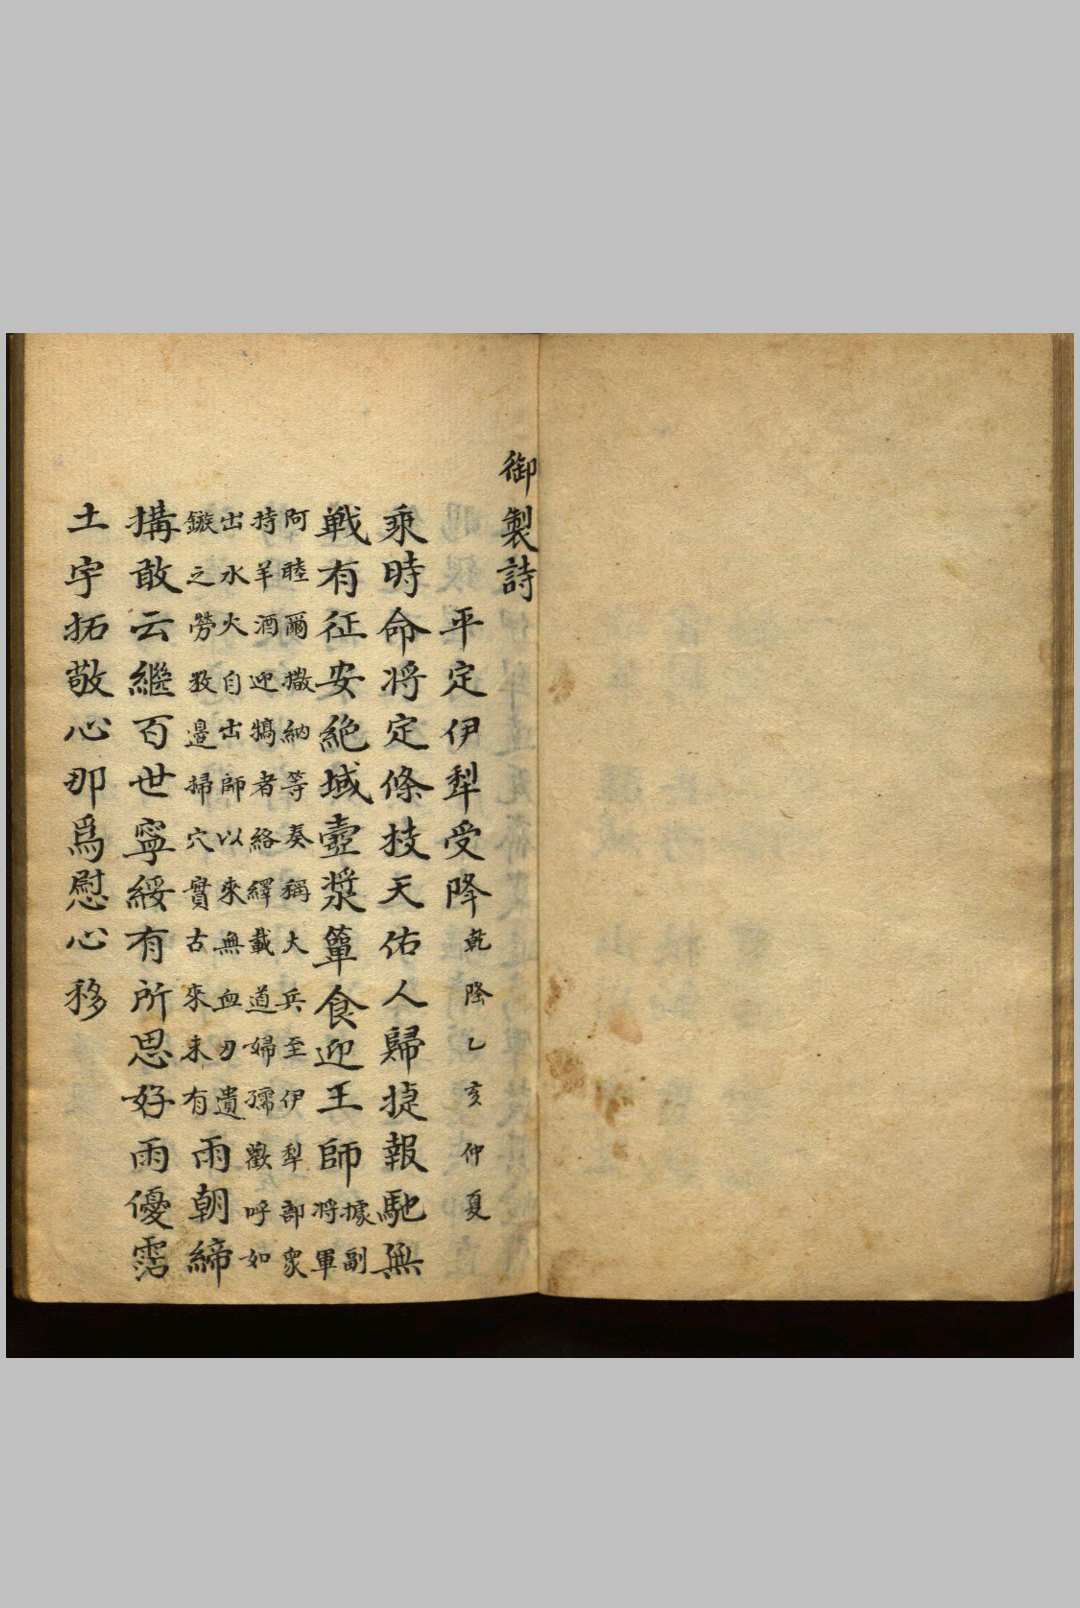 御製詩
平定伊犁受降乾隆乙亥仲夏
乘時命将定條技天佑人歸捷報馳無
戦有征安絶域壼漿簞食迎王師據副
将軍
阿睦爾撒納等奏稱大兵至伊犁部衆
持羊酒迎犒者絡繹載道婦孺歡呼如
出水火自出師以來無血刃遺
鏃之勞敉邊掃穴實古來未有
兩朝締
搆敢云繼百世寧綏有所思好雨優霑
土宇拓敬心那爲慰心移